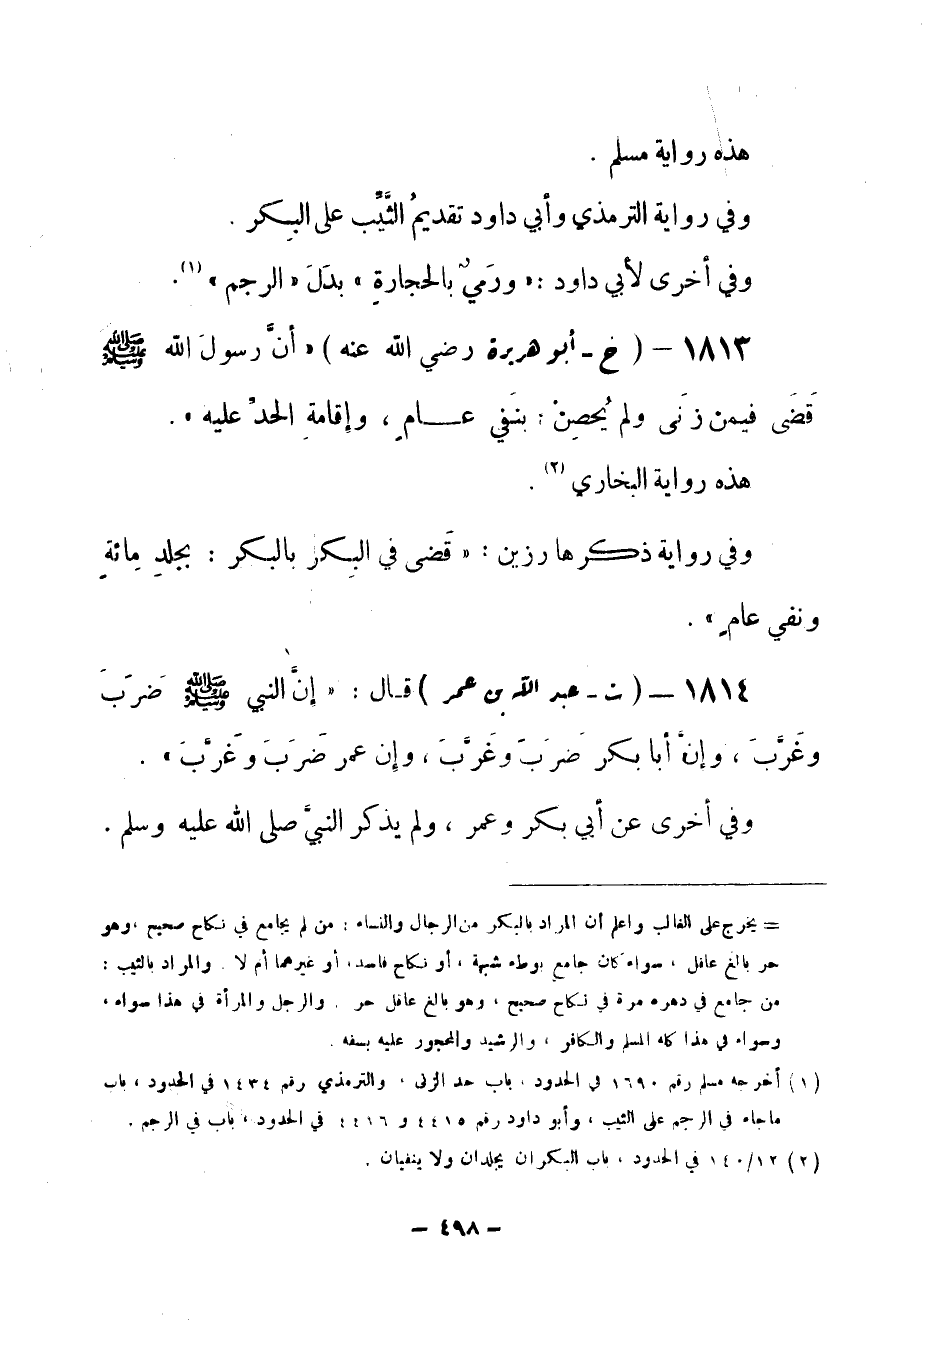 هذه رواية مسلم .
وفي رواية الترمذي وأبي داود تقديمُ الثَّيِّب على البِكر .
وفي أخرى لأبي داود : « ورَميٌ بالحجارةِ » بدَلَ « الرجم » (١).
١٨١٣ – ( خ - أبو هريرة رضي الله عنه ) « أنَّ رسولَ الله ﷺ
قَضَى فيمن زَنَى ولم يُحصِنْ : بنَفي عـــامٍ ، وإقامةِ الحدِّ عليه » .
هذه رواية البخاري (٢) .
وفي رواية ذكرها رزين : « قَضى في البِكر بالبكر : بجلدِ مِائةٍ
ونفي عامٍ » .
١٨١٤ – ( ت - عبد الله بن عمر ) قـال : « إنَّ النبي ﷺ ضَرَبَ
وغَرَّبَ ، وإنَّ أبا بكر ضَرَبَ وغَرَّبَ ، وإن عمر ضَرَبَ وغَرَّبَ » .
وفي أخرى عن أبي بكر وعمر ، ولم يذكر النبيَّ صلى الله عليه وسلم .
= يخرج على الغالب واعلم أن المراد بالبكر من الرجال والنساء : من لم يجامع في نكاح صحيح ، وهو
حر بالغ عاقل ، سواء كان جامع بوطء شبهة ، أو نكاح فاسد ، أو غيرهما أم لا . والمراد بالثيب :
من جامع في دهره مرة في نكاح صحيح ، وهو بالغ عاقل حر . والرجل والمرأة في هذا سواء ،
وسواء في هذا كله المسلم والكافر ، والرشيد والمحجور عليه بسفه .
(١) أخرجه مسلم رقم ١٦٩٠ في الحدود ، باب حد الزنى ، والترمذي رقم ١٤٣٤ في الحدود ، باب
ماجاء في الرجم على الثيب ، وأبو داود رقم ٤٤١٥ و ٤٤١٦ في الحدود ، باب في الرجم .
(٢) ١٤٠/١٢ في الحدود ، باب البكران يجلدان ولا ينفيان .
– ٤٩٨ –